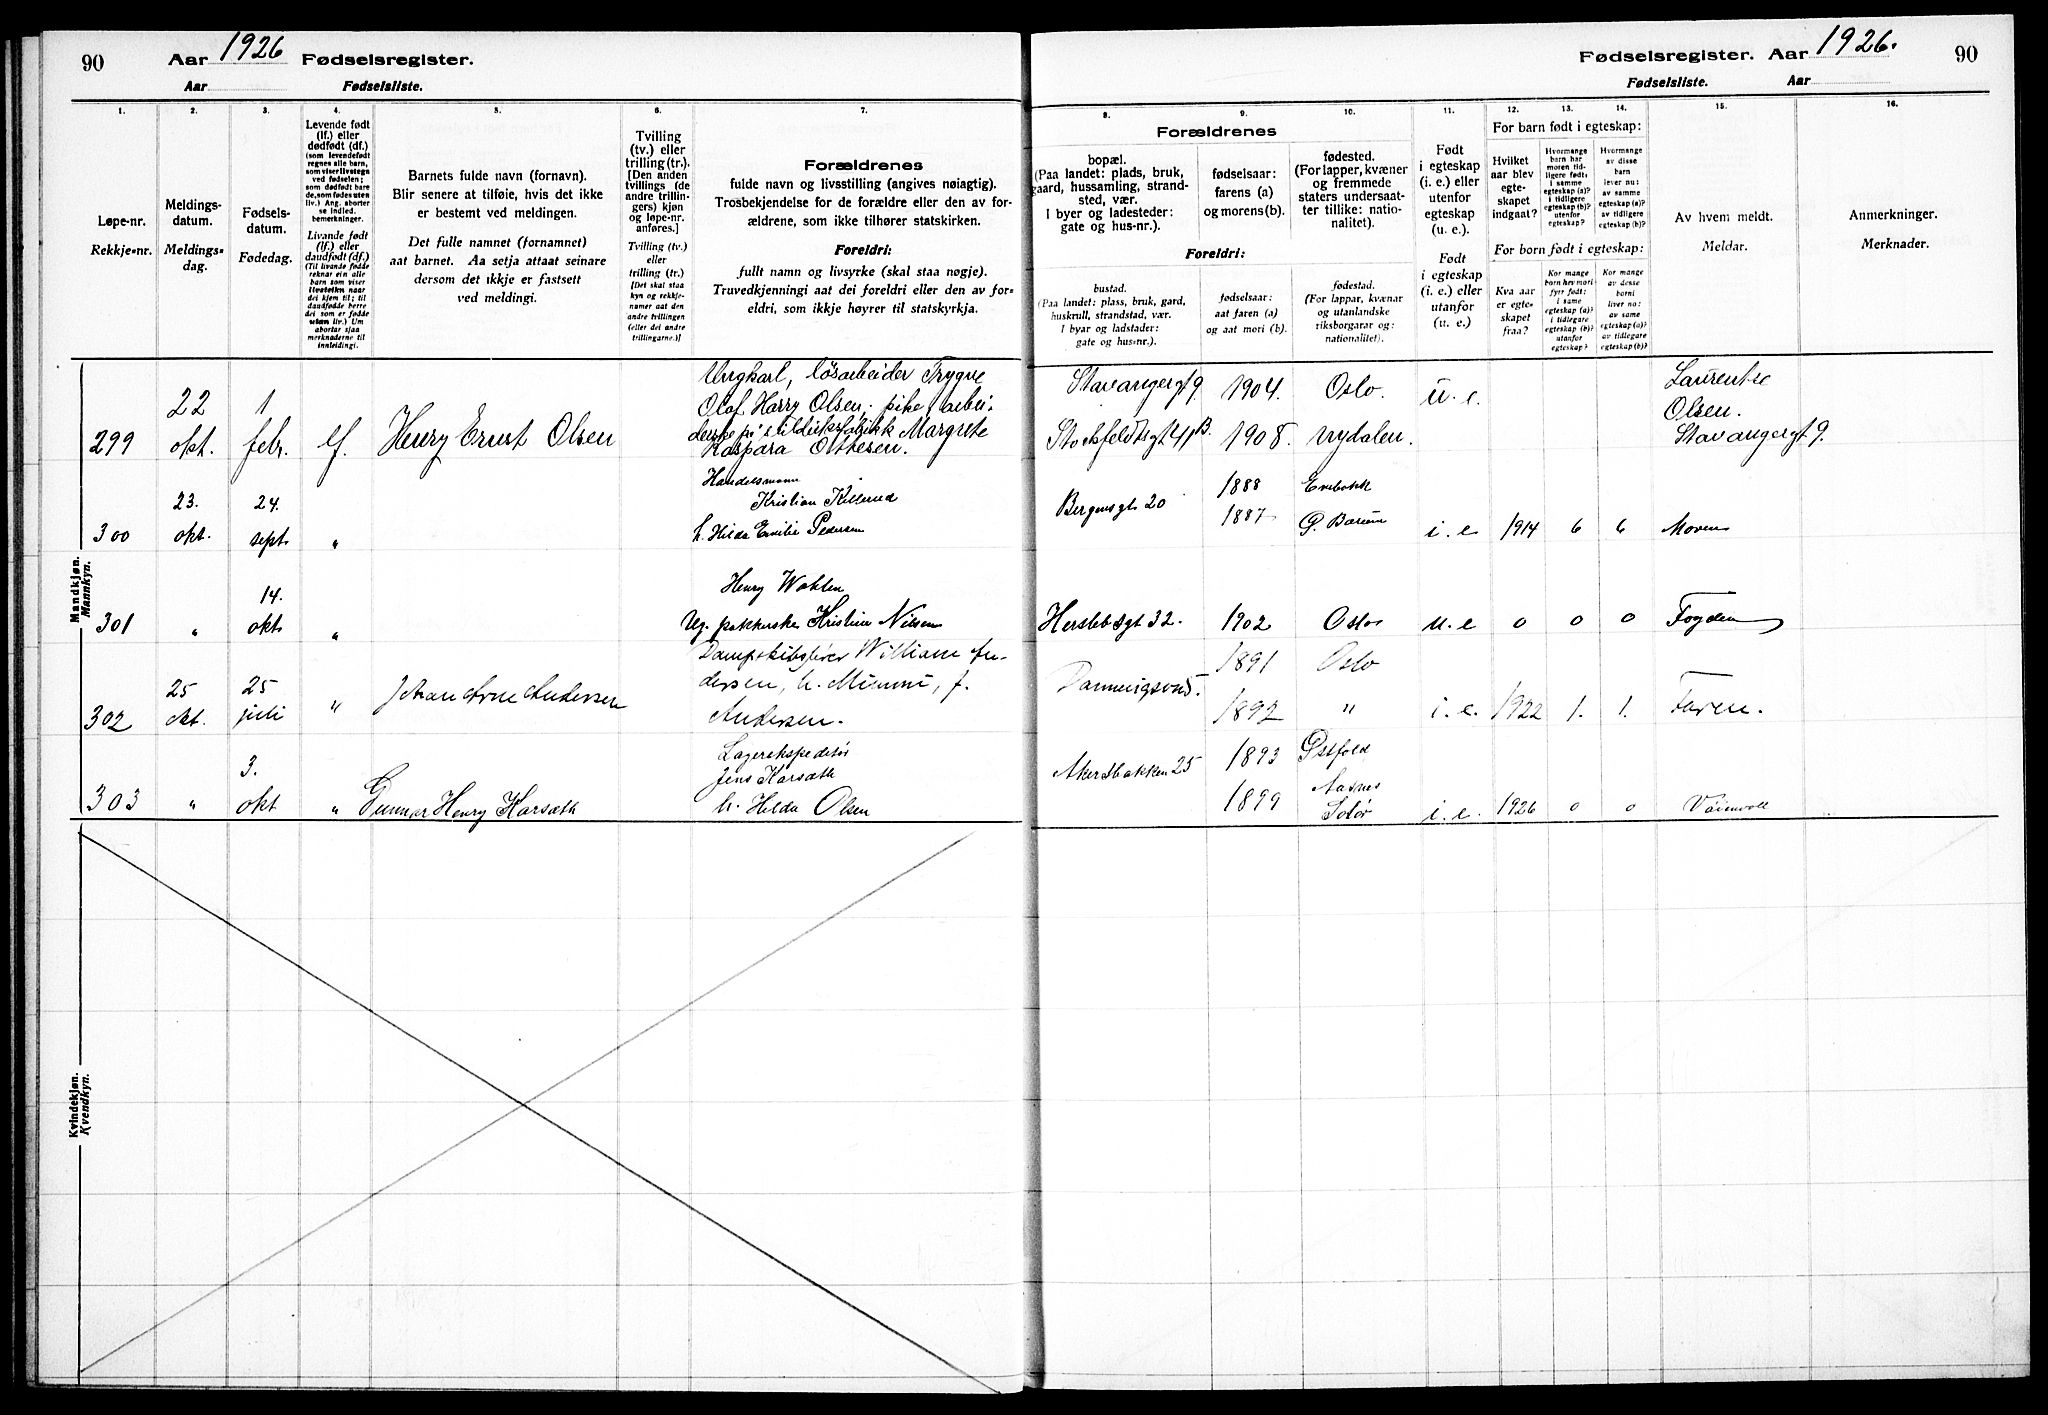 90
Aar 1926 Fødselsregister.
Aar Fødselsliste.
Fødselsregister. Aar 1926. 90
Fødselsliste. Aar
1. 2. 3. 4. 5. 6. 7.
Løpe-nr.
Rekkje=nr.
Meldings-
datum.
Meldings=
dag.
Fødsels-
datum.
Fødedag.
Levende født
(lf.) eller
dødfødt (df.)
(som levendefødt
regnes alle barn,
som viser livstegn
ved fødselen;
som dødfødt bare
de, som fødes uten
liv.) Ang. aborter
se indled.
bemerkninger.
Livande født
(lf.) eller
daudfødt (df.)
(Til livande fødde
reknar ein alle
barn som viser
livsteikn naar
dei kjem til; til
daudfødde berre
dei som er fødde
utan liv.) Um
abortar sjaa
merknaderne til
innleidingi.
Barnets fulde navn (fornavn).
Blir senere at tilføie, hvis det ikke
er bestemt ved meldingen.
Det fulle namnet (fornamnet)
aat barnet. Aa setja attaat seinare
dersom det ikkje er fastsett
ved meldingi.
Tvilling
(tv.) eller
trilling (tr.).
[Den anden
tvillings (de
andre trillin-
gers) kjøn
og løpe-nr.
anføres.]
Tvilling (tv.)
eller
trilling (tr.)
[Det skal staa
kyn og rekkje-
numer aat den
andre tvillingen
(eller dei andre
trillingarne.)]
Forældrenes
fulde navn og livsstilling (angives nøiagtig).
Trosbekjendelse for de forældre eller den av for-
ældrene, som ikke tilhører statskirken.
Foreldri:
fullt namn og livsyrke (skal staa nøgje).
Truvedkjenningi aat dei foreldri eller den av for=
eldri, som ikkje høyrer til statskyrkja.
8. 9. 10. 11. 12. 13. 14. 15. 16.
Forældrenes
bopæl.
(Paa landet: plads, bruk,
gaard, hussamling, strand-
sted, vær.
I byer og ladesteder:
gate og hus-nr.).
fødselsaar:
farens (a)
og morens (b).
fødested.
(For lapper, kvæner
og fremmede
staters undersaat-
ter tillike: natio-
nalitet).
Foreldri:
bustad.
(Paa landet: plass, bruk, gard,
huskrull, strandstad, vær.
I byar og ladstader:
gate og hus=nr.).
fødselsaar:
aat faren (a)
og aat mori (b).
fødestad.
(For lappar, kvænar
og utanlandske
riksborgarar og:
nationalitet).
Født
i egteskap
(i. e.) eller
utenfor
egteskap
(u. e.).
Født
i egteskap
(i. e.) eller
utanfor
(u. e.)
For barn født i egteskap:
Hvilket
aar blev
egte-
skapet
indgaat?
Hvormange
barn har
moren tid-
ligere født:
i samme
egteskap (a)?
i tidligere
egteskap (b)?
utenfor
egteskap?
Hvormange
av disse
barn
lever nu:
av samme
egteskap (a)?
av tidligere
egteskap (b)?
For born født i egteskap:
Kva aar
er egte-
skapet
fraa?
Kor mange
born hev mori
fyrr født:
i same
egteskap (a)?
i tidlegare
egteskap (b)?
utanfor
egteskap?
Kor mange
av desse
borni
liver no:
av same
egteskap (a)?
av tidlegare
egteskap (b)?
Av hvem meldt.
Meldar.
Anmerkninger.
Merknader.
Mandkjøn.
Mannkyn.
Ungkarl, løsarbeider Trygve
Olaf Harry Olsen, pike, arbei-
derske Margrete
299 22 okt. 1 febr. lf. Henry Ernst Olsen
Kaspara Ottesen.
Stavangergt 9. 1904. Oslo. u. e. Laurentse
Olsen.
Stockfeldtsgt 4B. 1908. Nydalen. Stavangergt 9.
Handelsmann
Kristian Killerud
300 23. okt. 24. sept. " h. Hilda Emilie Pedersen
Bergensgt 20 1888 Enebakk
1887 Ø. Bærum i. e 1914 6 6 Moren
Henry Wohlen
301 " 14. okt " Ug. pakkerske Kristine Nilsen
Herslebsgt 32. 1902 Oslo u. e 0 0 0 Fogden
Dampskibsfører William An-
dersen, h. Mimmi, f.
302 25 okt. 25 juli " Johan Arne Andersen
Andersen.
1891 Oslo
1892 " i. e. 1922 1. 1. Faren.
Lagerekspeditør
Jens Karsæth
303 " 3. okt " Gunnar Henry Karsæth
h. Hilda Olsen
Akersbakken 25 1893 Østfold
1899 Aasnes
Solør i. e. 1926 0 0
Kvindekjøn.
Kvendkyn.